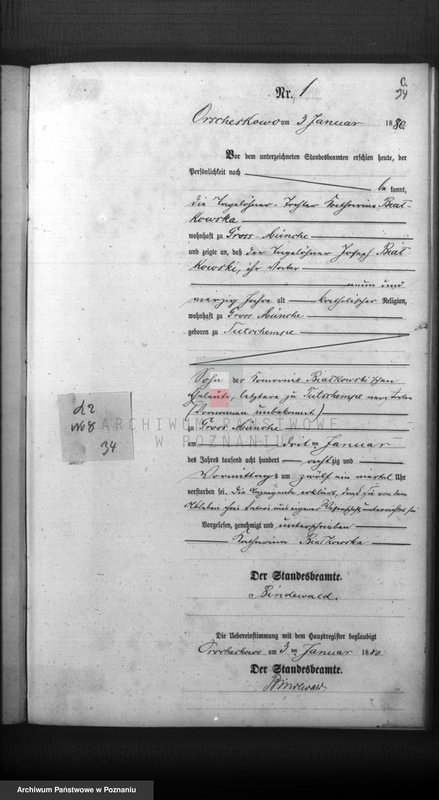 C.
34
Nr. 1
Orscheskowo am 3 Januar 1880
Vor dem unterzeichneten Standesbeamten erschien heute, der
Persönlichkeit nach be kannt,
die Tagelöhner-Tochter Katharina Biał-
kowska
wohnhaft zu Gross-Münche
und zeigte an, daß der Tagelöhner Joseph Biał-
kowski, ihr Vater
neun und
vierzig Jahre alt katholischer Religion,
wohnhaft zu Gross Münche
geboren zu Tutschempe
Sohn der Komornik Białkowski'schen
Eheleute, letztere zu Tutschempe verstorben
(Vornamen unbekannt)
zu Gross Münche
am drei ten Januar
des Jahres tausend acht hundert achtzig und
Vormittags um zwölf ein viertel Uhr
verstorben sei. Die Anzeigende erklärt, dass sie von dem
Ableben ihres Vaters aus eigener Wissenschaft unterrichtet sei
Vorgelesen, genehmigt und unterschrieben
Katharina Białkowska
Der Standesbeamte.
Bindewald.
Die Uebereinstimmung mit dem Hauptregister beglaubigt
Orscheskowo am 3 ten Januar 1880
Der Standesbeamte.
Bindewald.
34
ARCHIWUM PAŃSTWOWE
W POZNANIU
Archiwum Państwowe w Poznaniu